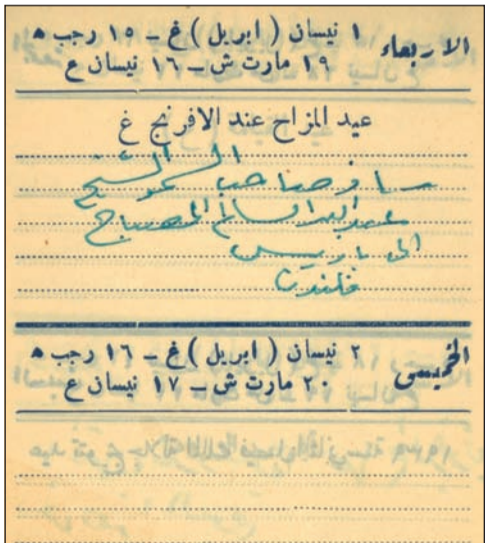 الاربعاء
١ نيسان ( ابريل ) غ – ١٥ رجب ه
١٩ مارت ش – ١٦ نيسان ع
عيد المزاح عند الافرنج غ
سافر صاحب السمو الشيخ
عبد الله السالم الصباح
الى باريس
فلندن
الخميس
٢ نيسان ( ابريل ) غ – ١٦ رجب ه
٢٠ مارت ش – ١٧ نيسان ع